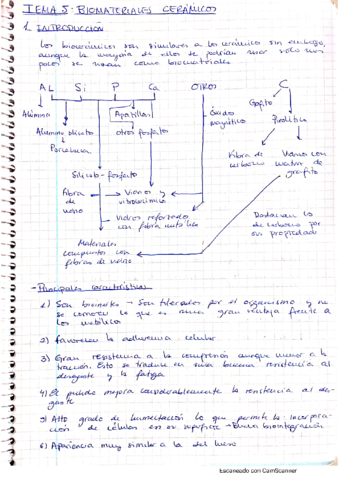 TEMA 5: BIOMATERIALES CERÁMICOS
1. INTRODUCCIÓN
Los biocerámicos son similares a los cerámicos sin embargo,
aunque la mayoría de ellos se podrían usar solo unos
pocos se usan como biomateriales
AL Si P Ca OTROS C
Alúmina
Apatitas
Óxido magnético
Grafito
Pirolítico
Alumino silicato
otros fosfatos
Porcelana
Fibra de carbono
Vidrio con
grafito
Silico-fosfato
Fibra de vidrio
Vidrios y vitrocerámica
Vidrios reforzados
con fibra
Materiales compuestos con fibras de vidrio
por sus propiedades
- Principales características
1) Son bioinertes → Son tolerados por el organismo y no
se corroen lo que es una gran ventaja frente a
los metálicos
2) Favorecen la adherencia celular
3) Gran resistencia a la compresión aunque menor a la
tracción. Esto se traduce en una buena resistencia al
desgaste y la fatiga
4) El pulido mejora considerablemente la resistencia al des-
gaste
5) Alto grado de humectación lo que permite la incorpora-
ción de células en su superficie → Buena biointegración
6) Apariencia muy similar a la del hueso
Escaneado con CamScanner